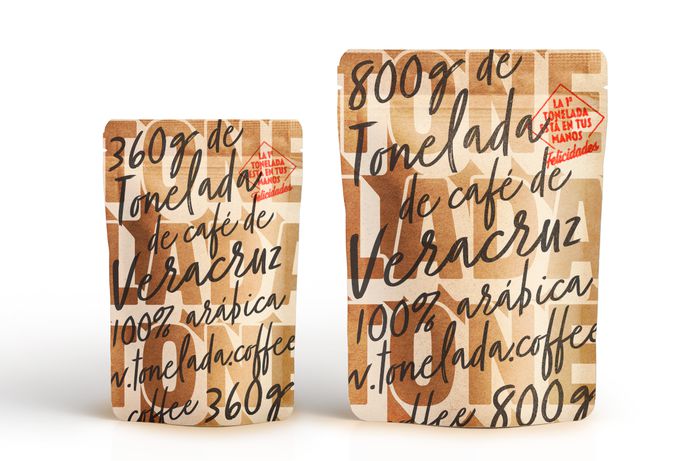 360g de
Tonelada
de café de
Veracruz
100% arábica
w.tonelada.coffee
coffee 360g
LA 1ª
TONELADA
ESTÁ EN TUS
MANOS
felicidades
TONE
LADA
TONE
800g de
Tonelada
de café de
Veracruz
100% arábica
w.tonelada.coffee
coffee 800g
LA 1ª
TONELADA
ESTÁ EN TUS
MANOS
felicidades
TONE
LADA
TONE